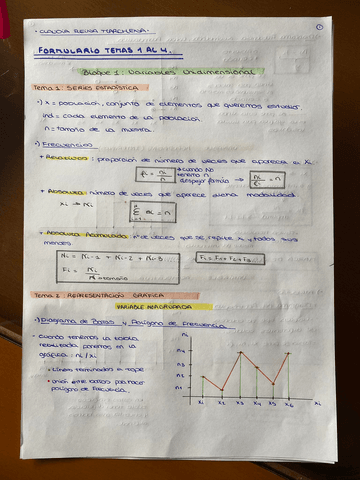 · CLAUDIA REINA MARCHENA.
1
FORMULARIO TEMAS 1 AL 4.
Bloque 1: Variables Unidimensional
Tema 1: SERIES ESTADÍSTICA
·) X = población, conjunto de elementos que queremos estudiar.
ind = cada elemento de la población.
n = tamaño de la muestra.
·) Frecuencias
* Relativas: proporción de número de veces que aparece xi
fi = ni/n
* cuando No
tenemos n
despejar formula → ni/fi = n
* Absoluta: número de veces que aparece modalidad
xi → Ni
Σ = n
* Absoluta Acumulada: nº de veces que se repite xi y todos sus
menores
Ni = Ni-1 + Ni-2 + Ni-3...
Fi = Ni/N
Fi = F1+F2+F3...
Tema 2: REPRESENTACIÓN GRÁFICA
VARIABLE NO AGRUPADA
·) Diagrama de Barras y Polígono de Frecuencia
• Cuando tenemos la tabla
realizada ponemos en la
gráfica: ni/xi
• Líneas terminadas en tope
• Unión entre barras para hacer
polígono de frecuencia.
ni
n4
n3
n2
n1
x1 x2 x3 x4 x5 x6 xi